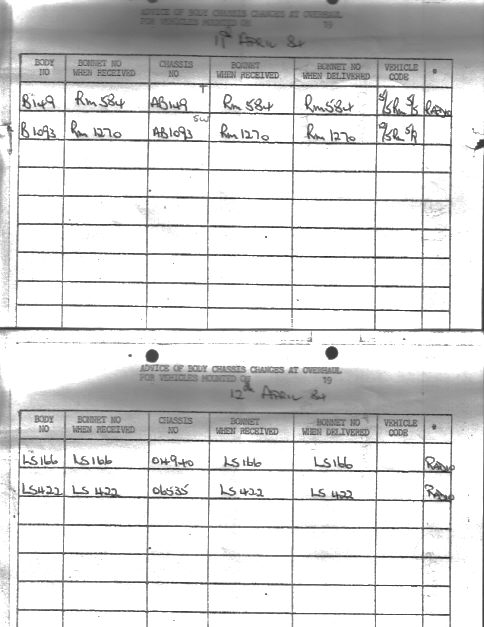 ADVICE OF BODY CHASSIS CHANGES AT OVERHAUL
FOR VEHICLES MOUNTED ON 19
19th APRIL 84
BODY NO BONNET NO WHEN RECEIVED CHASSIS NO BONNET WHEN RECEIVED BONNET NO WHEN DELIVERED VEHICLE CODE *
B149 Rm 584 AB149 T Rm 584 Rm 584 RADIO
B1093 Rm 1270 AB1093 SW Rm 1270 Rm 1270
ADVICE OF BODY CHASSIS CHANGES AT OVERHAUL
FOR VEHICLES MOUNTED ON 19
12th APRIL 84
BODY NO BONNET NO WHEN RECEIVED CHASSIS NO BONNET WHEN RECEIVED BONNET NO WHEN DELIVERED VEHICLE CODE *
LS166 LS166 04940 LS166 LS166 RADIO
LS422 LS 422 06535 LS 422 LS 422 RADIO